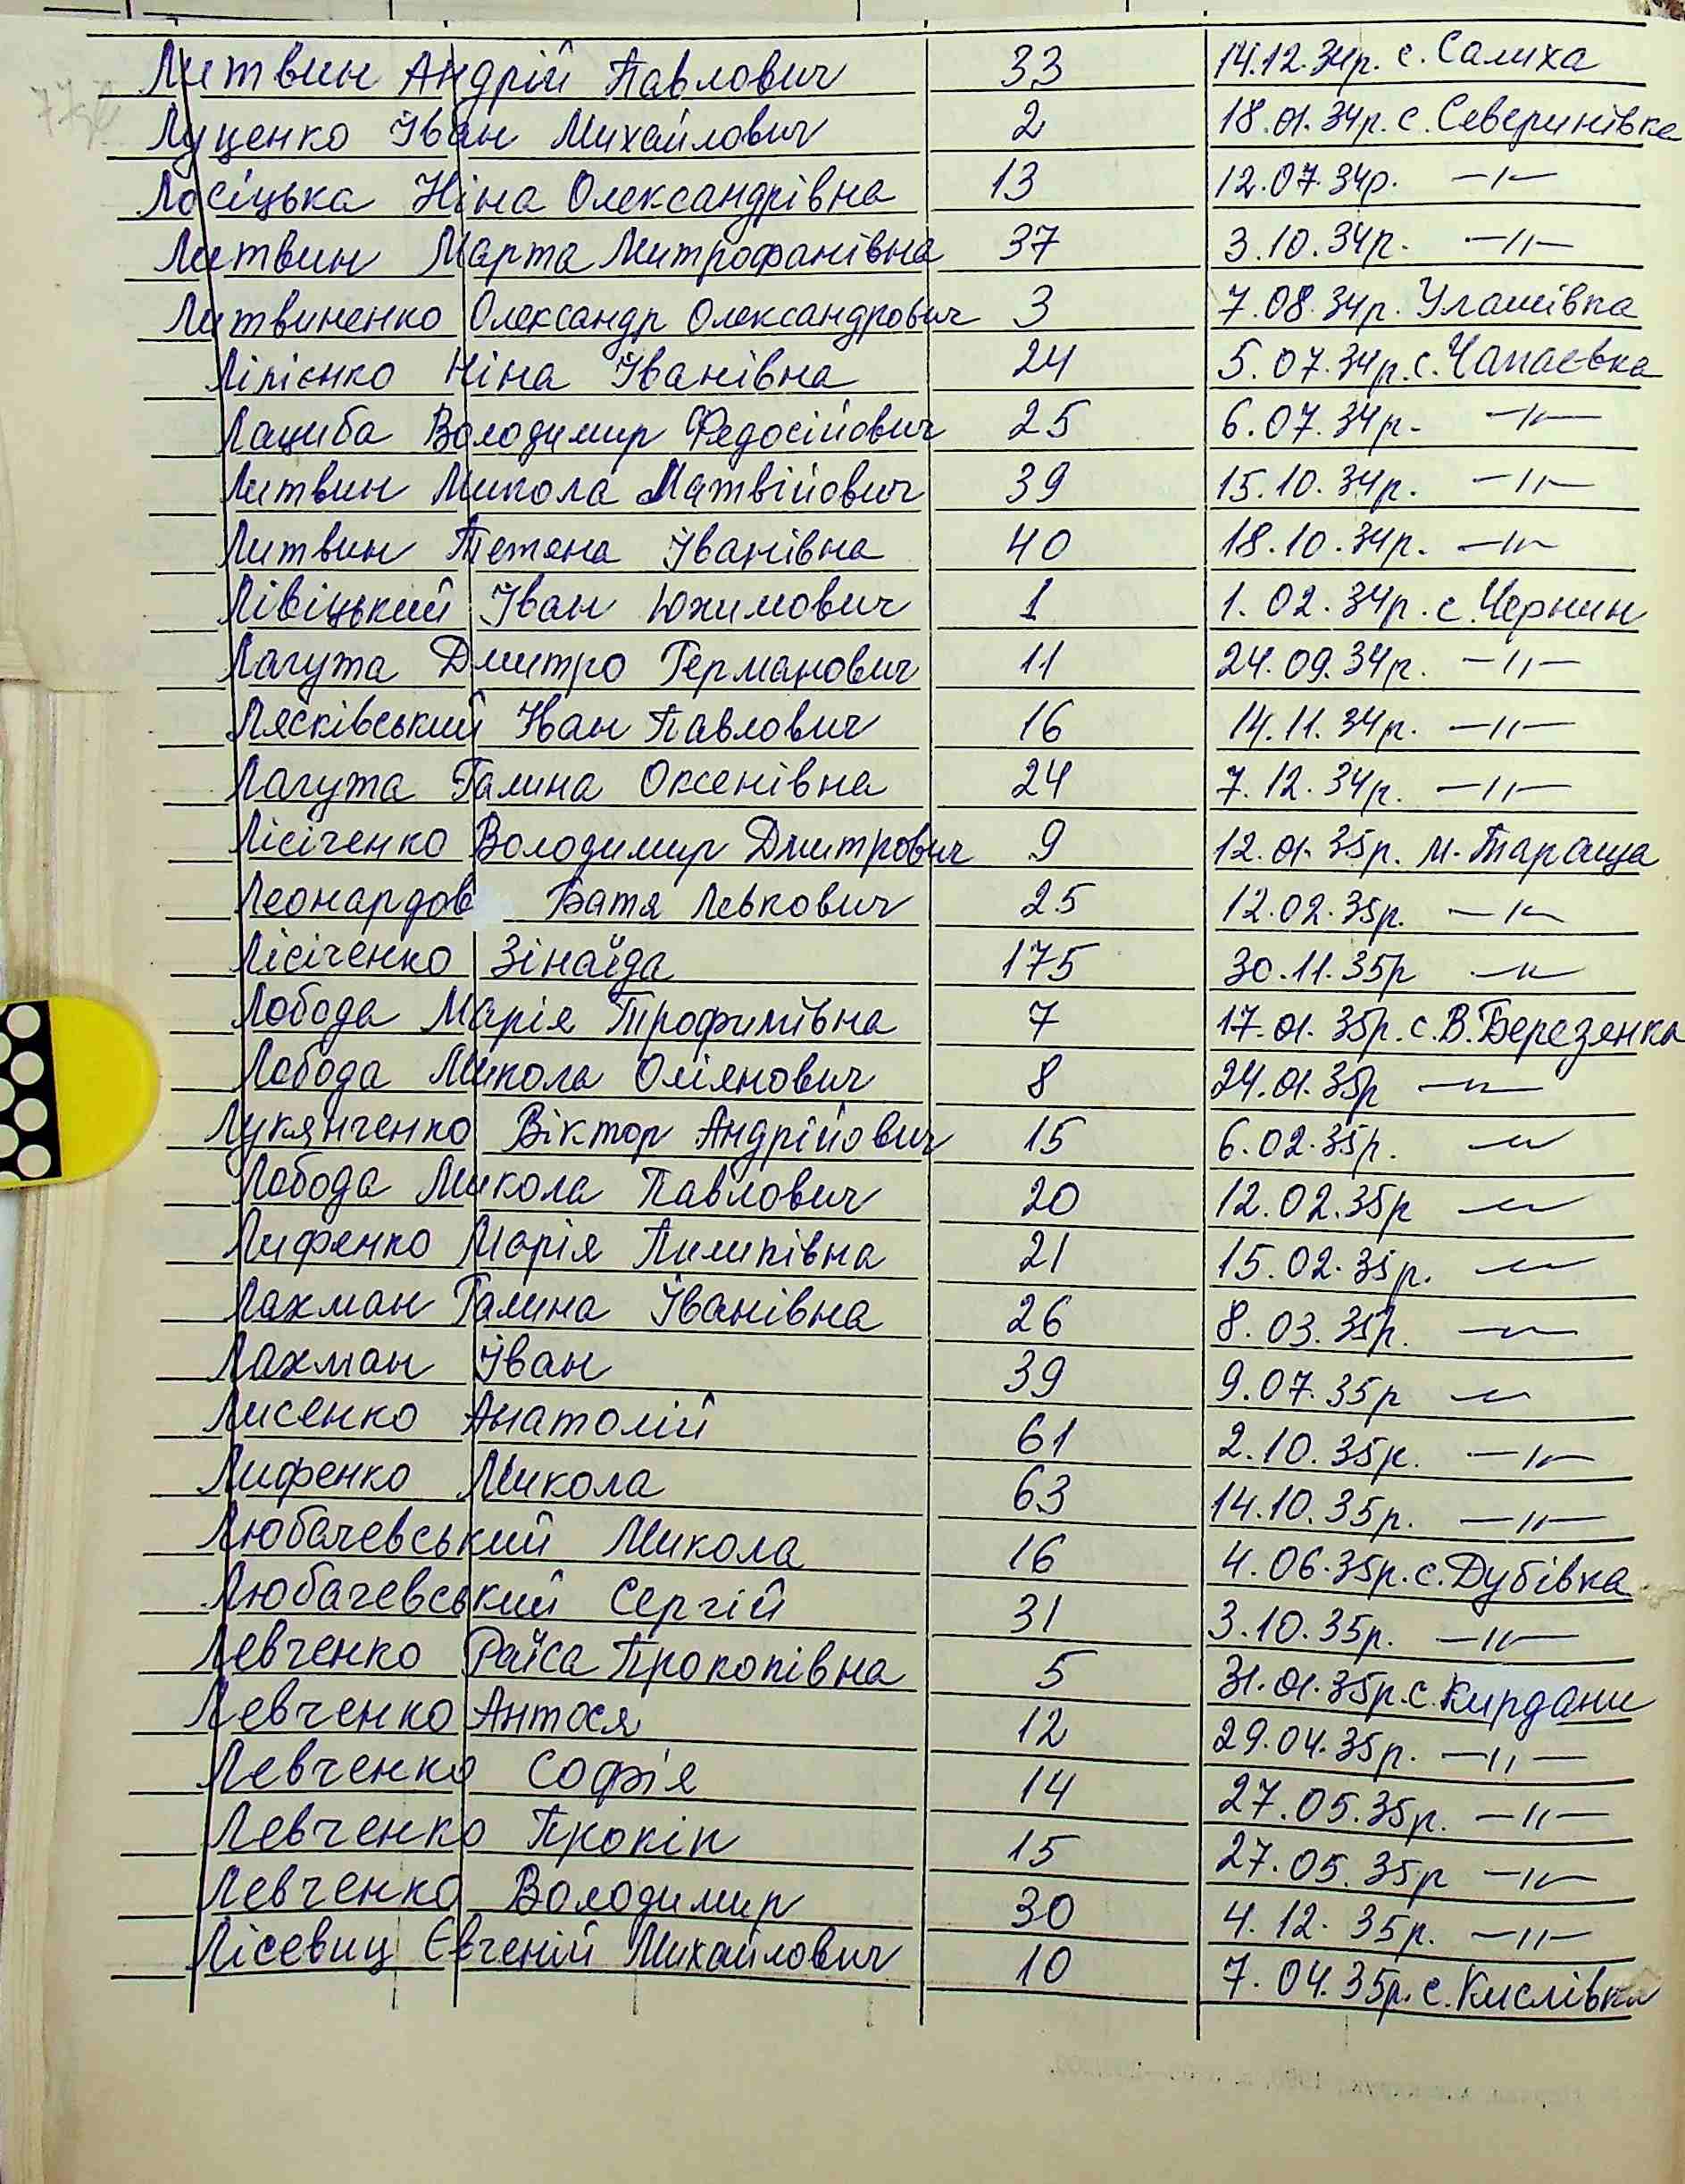 Литвин Андрій Павлович 33 14.12.34р. с. Салиха
Луценко Іван Михайлович 2 18.01.34р. с. Северинівка
Лосіцька Ніна Олександрівна 13 12.07.34р. —"—
Литвин Марта Митрофанівна 37 3.10.34р. —"—
Литвиненко Олександр Олександрович 3 7.08.34р. Улашівка
Ліпієнко Ніна Іванівна 24 5.07.34р. с. Чапаєвка
Лациба Володимир Федосійович 25 6.07.34р. —"—
Литвин Микола Матвійович 39 15.10.34р. —"—
Литвин Тетяна Іванівна 40 18.10.34р. —"—
Лівіцький Іван Юхимович 1 1.02.34р. с. Чернин
Лагута Дмитро Германович 11 24.09.34р. —"—
Лясківський Іван Павлович 16 14.11.34р. —"—
Лагута Галина Оксенівна 24 7.12.34р. —"—
Лісіченко Володимир Дмитрович 9 12.01.35р. м. Тараща
Леонардов Батя Левкович 25 12.02.35р. —"—
Лісіченко Зінаїда 175 30.11.35р —"—
Лобода Марія Трофимівна 7 17.01.35р. с. В. Березянка
Лобода Микола Оліянович 8 24.01.35р —"—
Лукянченко Віктор Андрійович 15 6.02.35р. —"—
Лобода Микола Павлович 20 12.02.35р —"—
Лифенко Марія Пилипівна 21 15.02.35р. —"—
Лахман Галина Іванівна 26 8.03.35р. —"—
Лахман Іван 39 9.07.35р —"—
Лисенко Анатолій 61 2.10.35р. —"—
Лифенко Микола 63 14.10.35р. —"—
Любачевський Микола 16 4.06.35р. с. Дубівка
Любачевський Сергій 31 3.10.35р. —"—
Левченко Раїса Прокопівна 5 31.01.35р. с. Кирдани
Левченко Антося 12 29.04.35р. —"—
Левченко Софія 14 27.05.35р. —"—
Левченко Прокіп 15 27.05.35р —"—
Левченко Володимир 30 4.12.35р. —"—
Лісевиц Євгеній Михайлович 10 7.04.35р. с. Кислівка